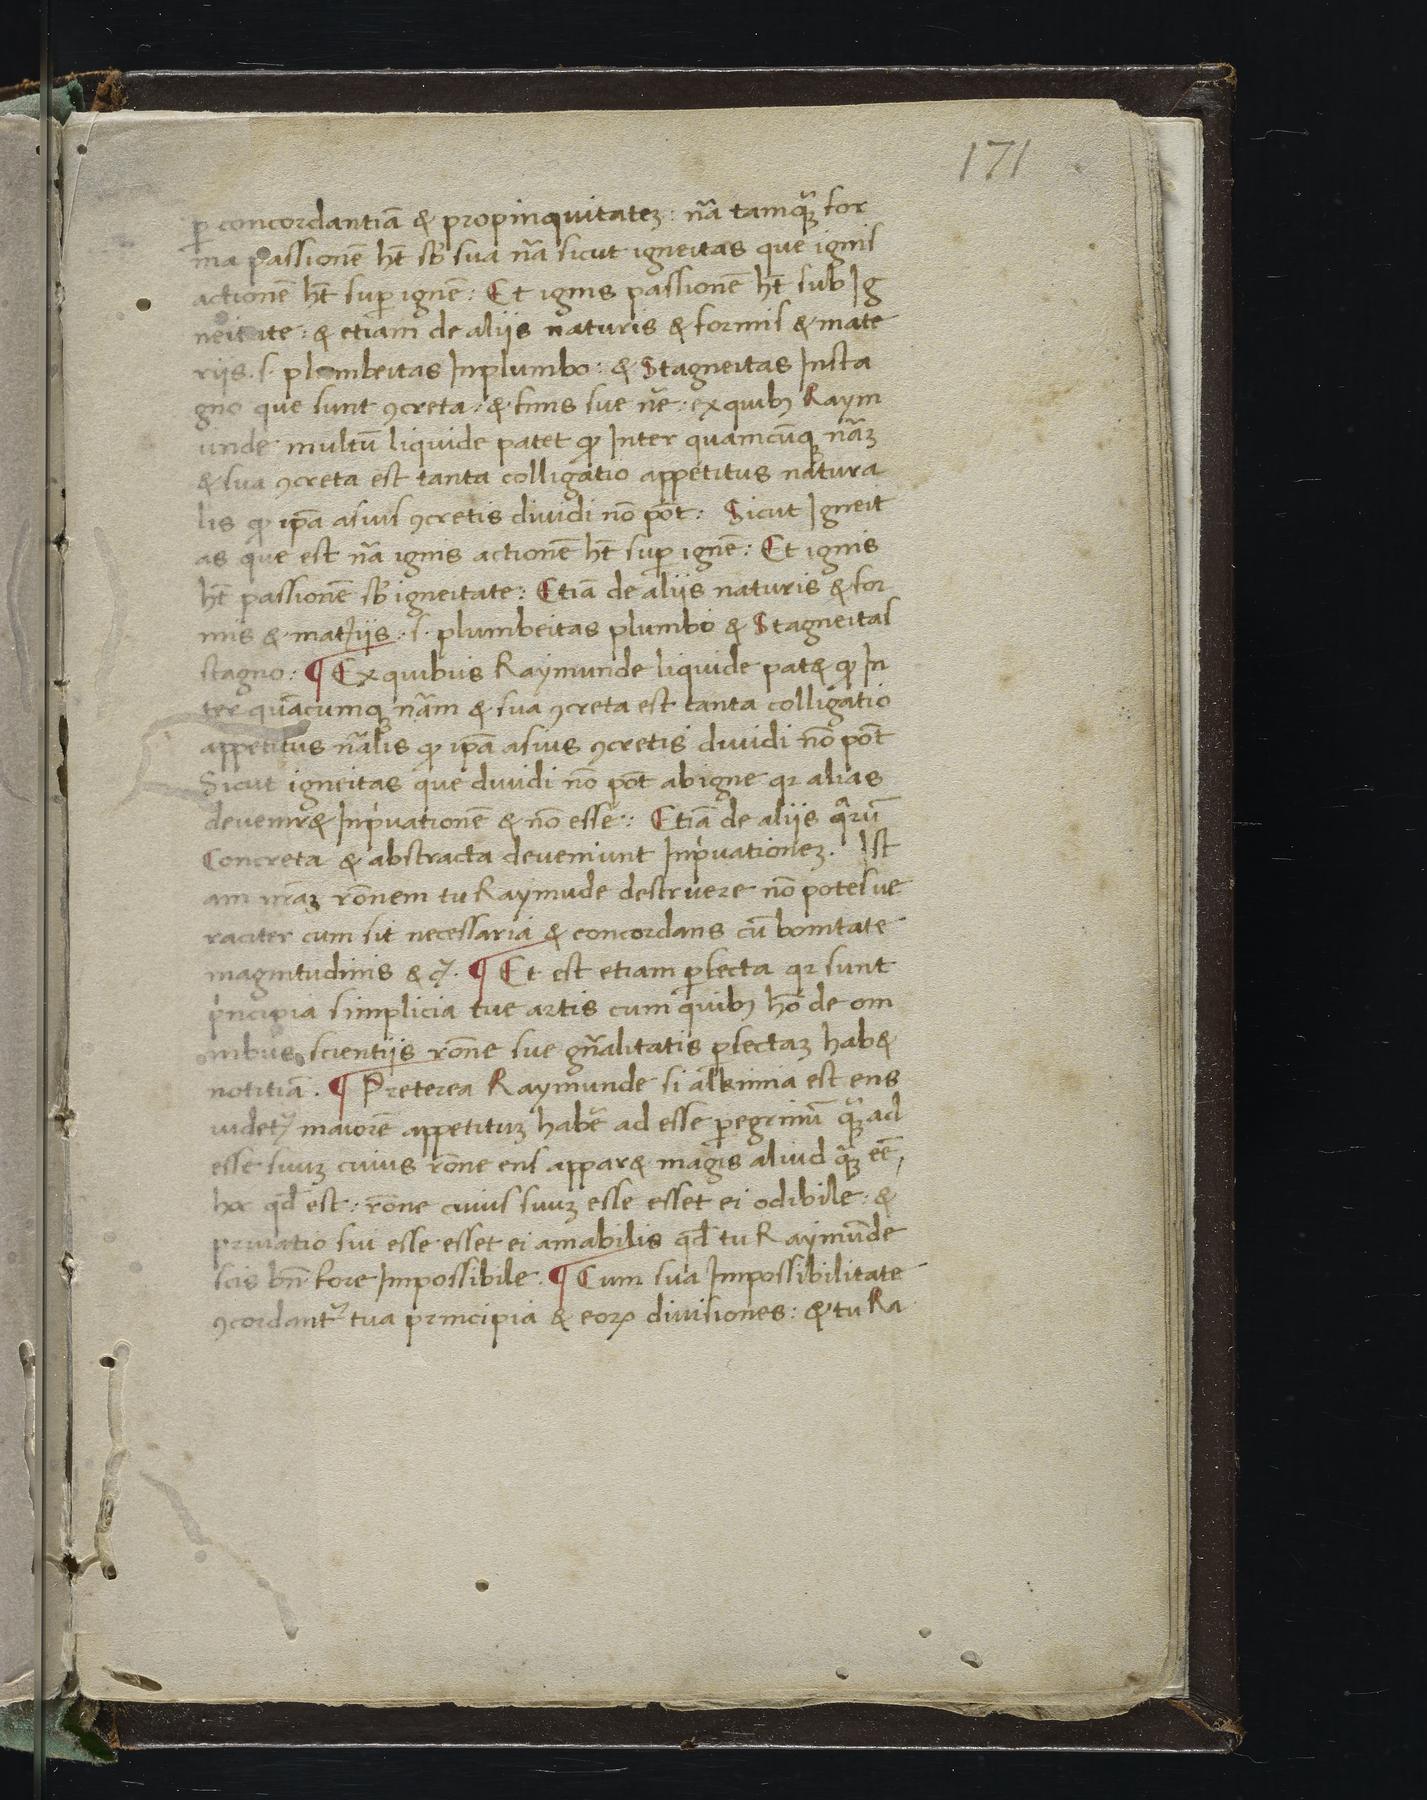 171
ꝑ concordantiã & propinquitatez: nã̃ tamqȝ for
ma passionẽ ht̃ sb̃ sua nã sicut igneitas que ignis
actionẽ ht̃ suꝑ ignẽ: Et ignis passionẽ ht̃ sub Ig
neitate: & etiam de aliis naturis & formis & mate
riis. s. plombeitas In plumbo: & Stagneitas In sta
gno que sunt ꝯcreta: & finis sue nẽ: ex quibꝫ Raym
unde multũ liquide patet qͦ Inter quamcũqꝫ nãz
& sua ꝯcreta est tanta colligatio appetitus natura
lis qͦ ip̃a a suis ꝯcretis dividi nõ põt: Sicut Igneit
as que est nã ignis actionẽ ht̃ suꝑ ignẽ: Et ignis
ht̃ passionẽ sb̃ igneitate: Etiã de aliis naturis & for
mis & mat̃iis. s. plumbeitas plumbo & Stagneitas
stagno: ¶ Ex quibus Raymunde liquide pat& qͦ In
ter quãcumqꝫ nãm & sua ꝯcreta est tanta colligatio
appetitus nãlis qͦ ip̃a a suis ꝯcretis dividi nõ põt
Sicut igneitas que dividi nõ põt ab igne qr alias
devenir& In pͥvationẽ & nõ esse: Etiã de aliis qͣrũ
Concreta & abstracta deveniunt In pͥvationez. Ist
am nr̃az rõnem tu Raymude destruere nõ potes ve
raciter cum sit necessaria & concordans cũ bonitate
magnitudinis & cꝫ. ¶ Et est etiam ꝑfecta qr sunt
pͥncipia simplicia tue artis cum quibꝫ hõ de om
nibus scientiis rõne sue gñalitatis ꝑfectaz hab&
notitiã. ¶ Preterea Raymunde si alkimia est ens
videt̃ maiorẽ appetituz habẽ ad esse ꝑegrinũ qȝ ad
esse suuz cuius rõne ens appar& magis aliud qȝ eẽ,
hoc qd̃ est: rõne cuius suuz esse esset ei odibile: &
privatio sui esse esset ei amabilis qd̃ tu Raymũde
scis bñ fore Impossibile. ¶ Cum sua Impossibilitate
ꝯcordant̃ tua principia & eoꝝ divisiones: & tu Ra